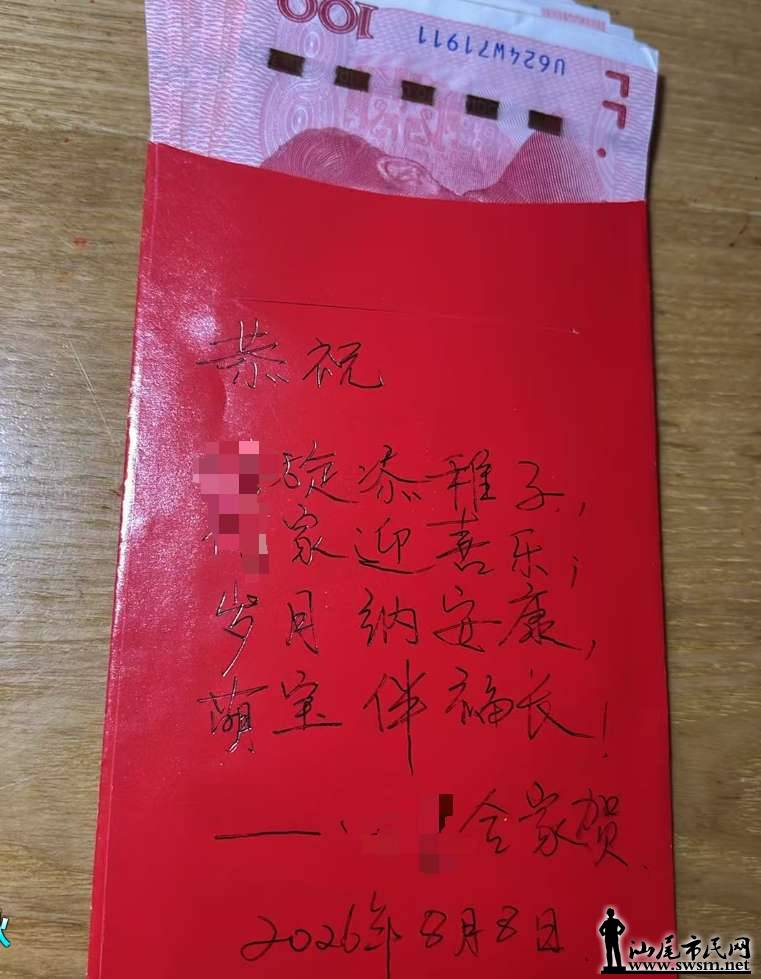 100
U624W71911
恭祝
碇添稚子,
家迎喜乐;
岁月纳安康,
萌宝伴福长!
——合家贺
2026年8月8日
汕尾市民网
www.swsm.net